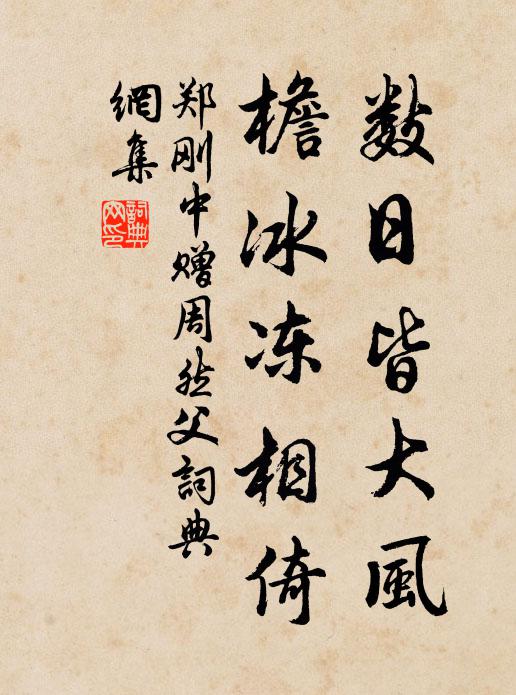 数日皆大风
檐冰冻相倚
郑刚中赠周然父詞典
網集
詞典
网印